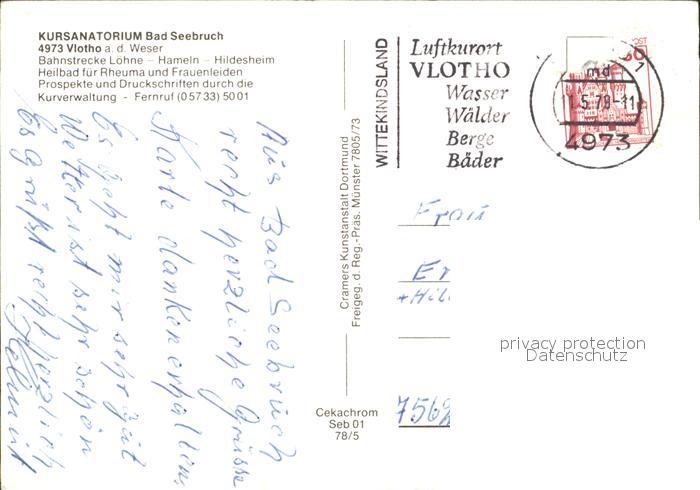 KURSANATORIUM Bad Seebruch
4973 Vlotho a. d. Weser
Bahnstrecke Löhne – Hameln – Hildesheim
Heilbad für Rheuma und Frauenleiden
Prospekte und Druckschriften durch die
Kurverwaltung - Fernruf (05733) 5001
Aus Bad Seebruch
recht herzliche Grüsse
Karte dankend erhalten
Es geht mir sehr gut
Wetter ist sehr schön
Es grüßt recht herzlich
Helmut
Cramers Kunstanstalt Dortmund
Freigeg. d. Reg.-Präs. Münster 7805/73
Cekachrom
Seb 01
78/5
WITTEKINDSLAND
Luftkurort
VLOTHO
Wasser
Wälder
Berge
Bäder
md
4973
Frau
privacy protection
Datenschutz